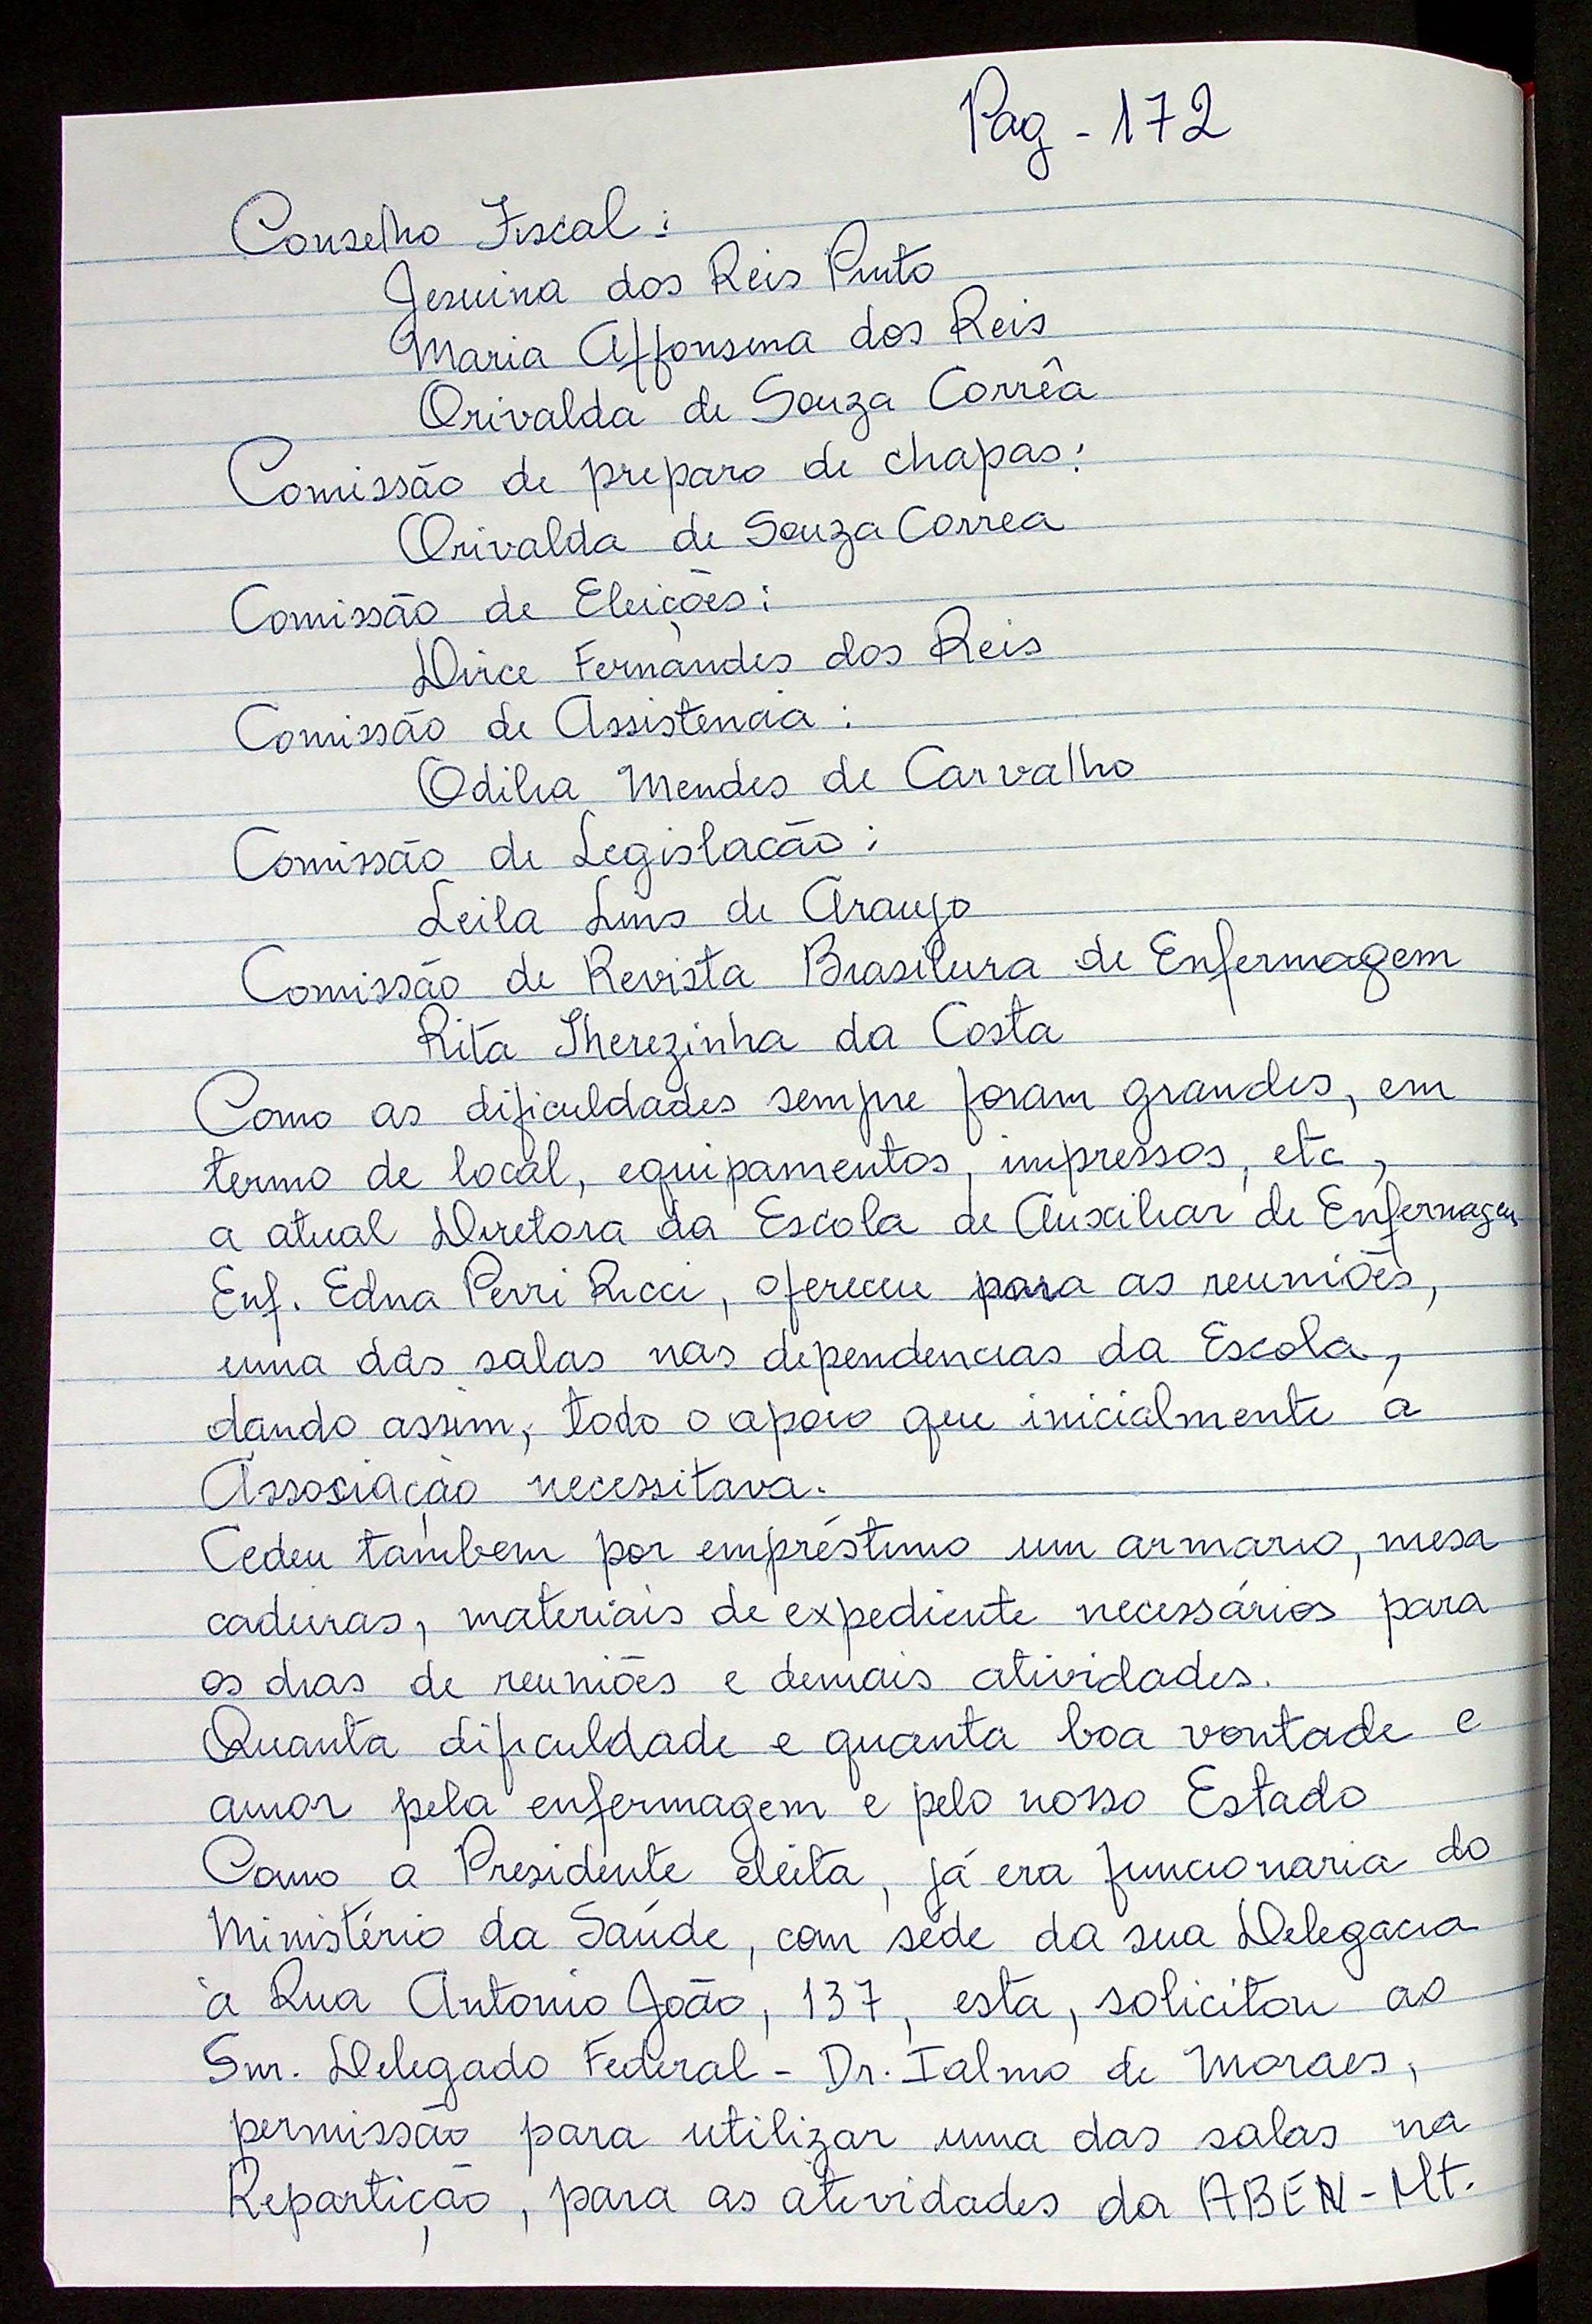 Pag - 172
Conselho Fiscal:
Jesuina dos Reis Pinto
Maria Affonsina dos Reis
Orivalda de Souza Corrêa
Comissão de preparo de chapas:
Orivalda de Souza Correa
Comissão de Eleições:
Dirce Fernandes dos Reis
Comissão de Assistencia:
Odilia Mendes de Carvalho
Comissão de Legislacão:
Leila Lins de Araujo
Comissão de Revista Brasileira de Enfermagem
Rita Therezinha da Costa
Como as dificuldades sempre foram grandes, em
termo de local, equipamentos, impressos, etc,
a atual Diretora da Escola de Auxiliar de Enfermagem
Enf. Edna Perri Ricci, ofereceu para as reuniões,
uma das salas nas dependencias da Escola,
dando assim, todo o apoio que inicialmente a
Associação necessitava.
Cedeu tambem por empréstimo um armario, mesa
cadeiras, materiais de expediente necessários para
os dias de reuniões e demais atividades.
Quanta dificuldade e quanta boa vontade e
amor pela enfermagem e pelo nosso Estado
Como a Presidente eleita, já era funcionaria do
Ministério da Saúde, com sede da sua Delegacia
à Rua Antonio João, 137, esta, solicitou ao
Snr. Delegado Federal - Dr. Ialmo de Moraes,
permissão para utilizar uma das salas na
Repartição, para as atividades da ABEN - Mt.